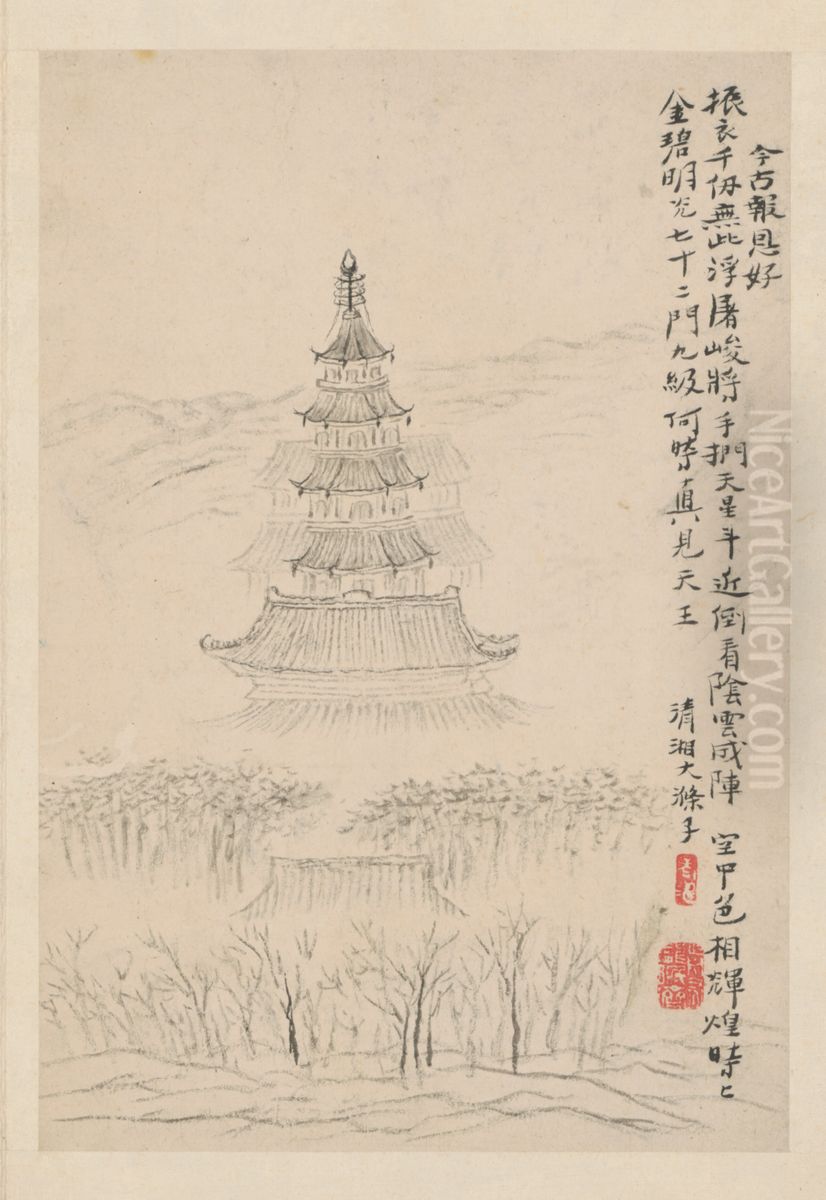 今古報恩好
振衣千仞無此浮屠峻將手捫天星斗近倒看陰雲成陣 空中色相輝煌時〻
金碧明光七十二門九級何時真見天王
清湘大滌子
NiceArtGallery.com